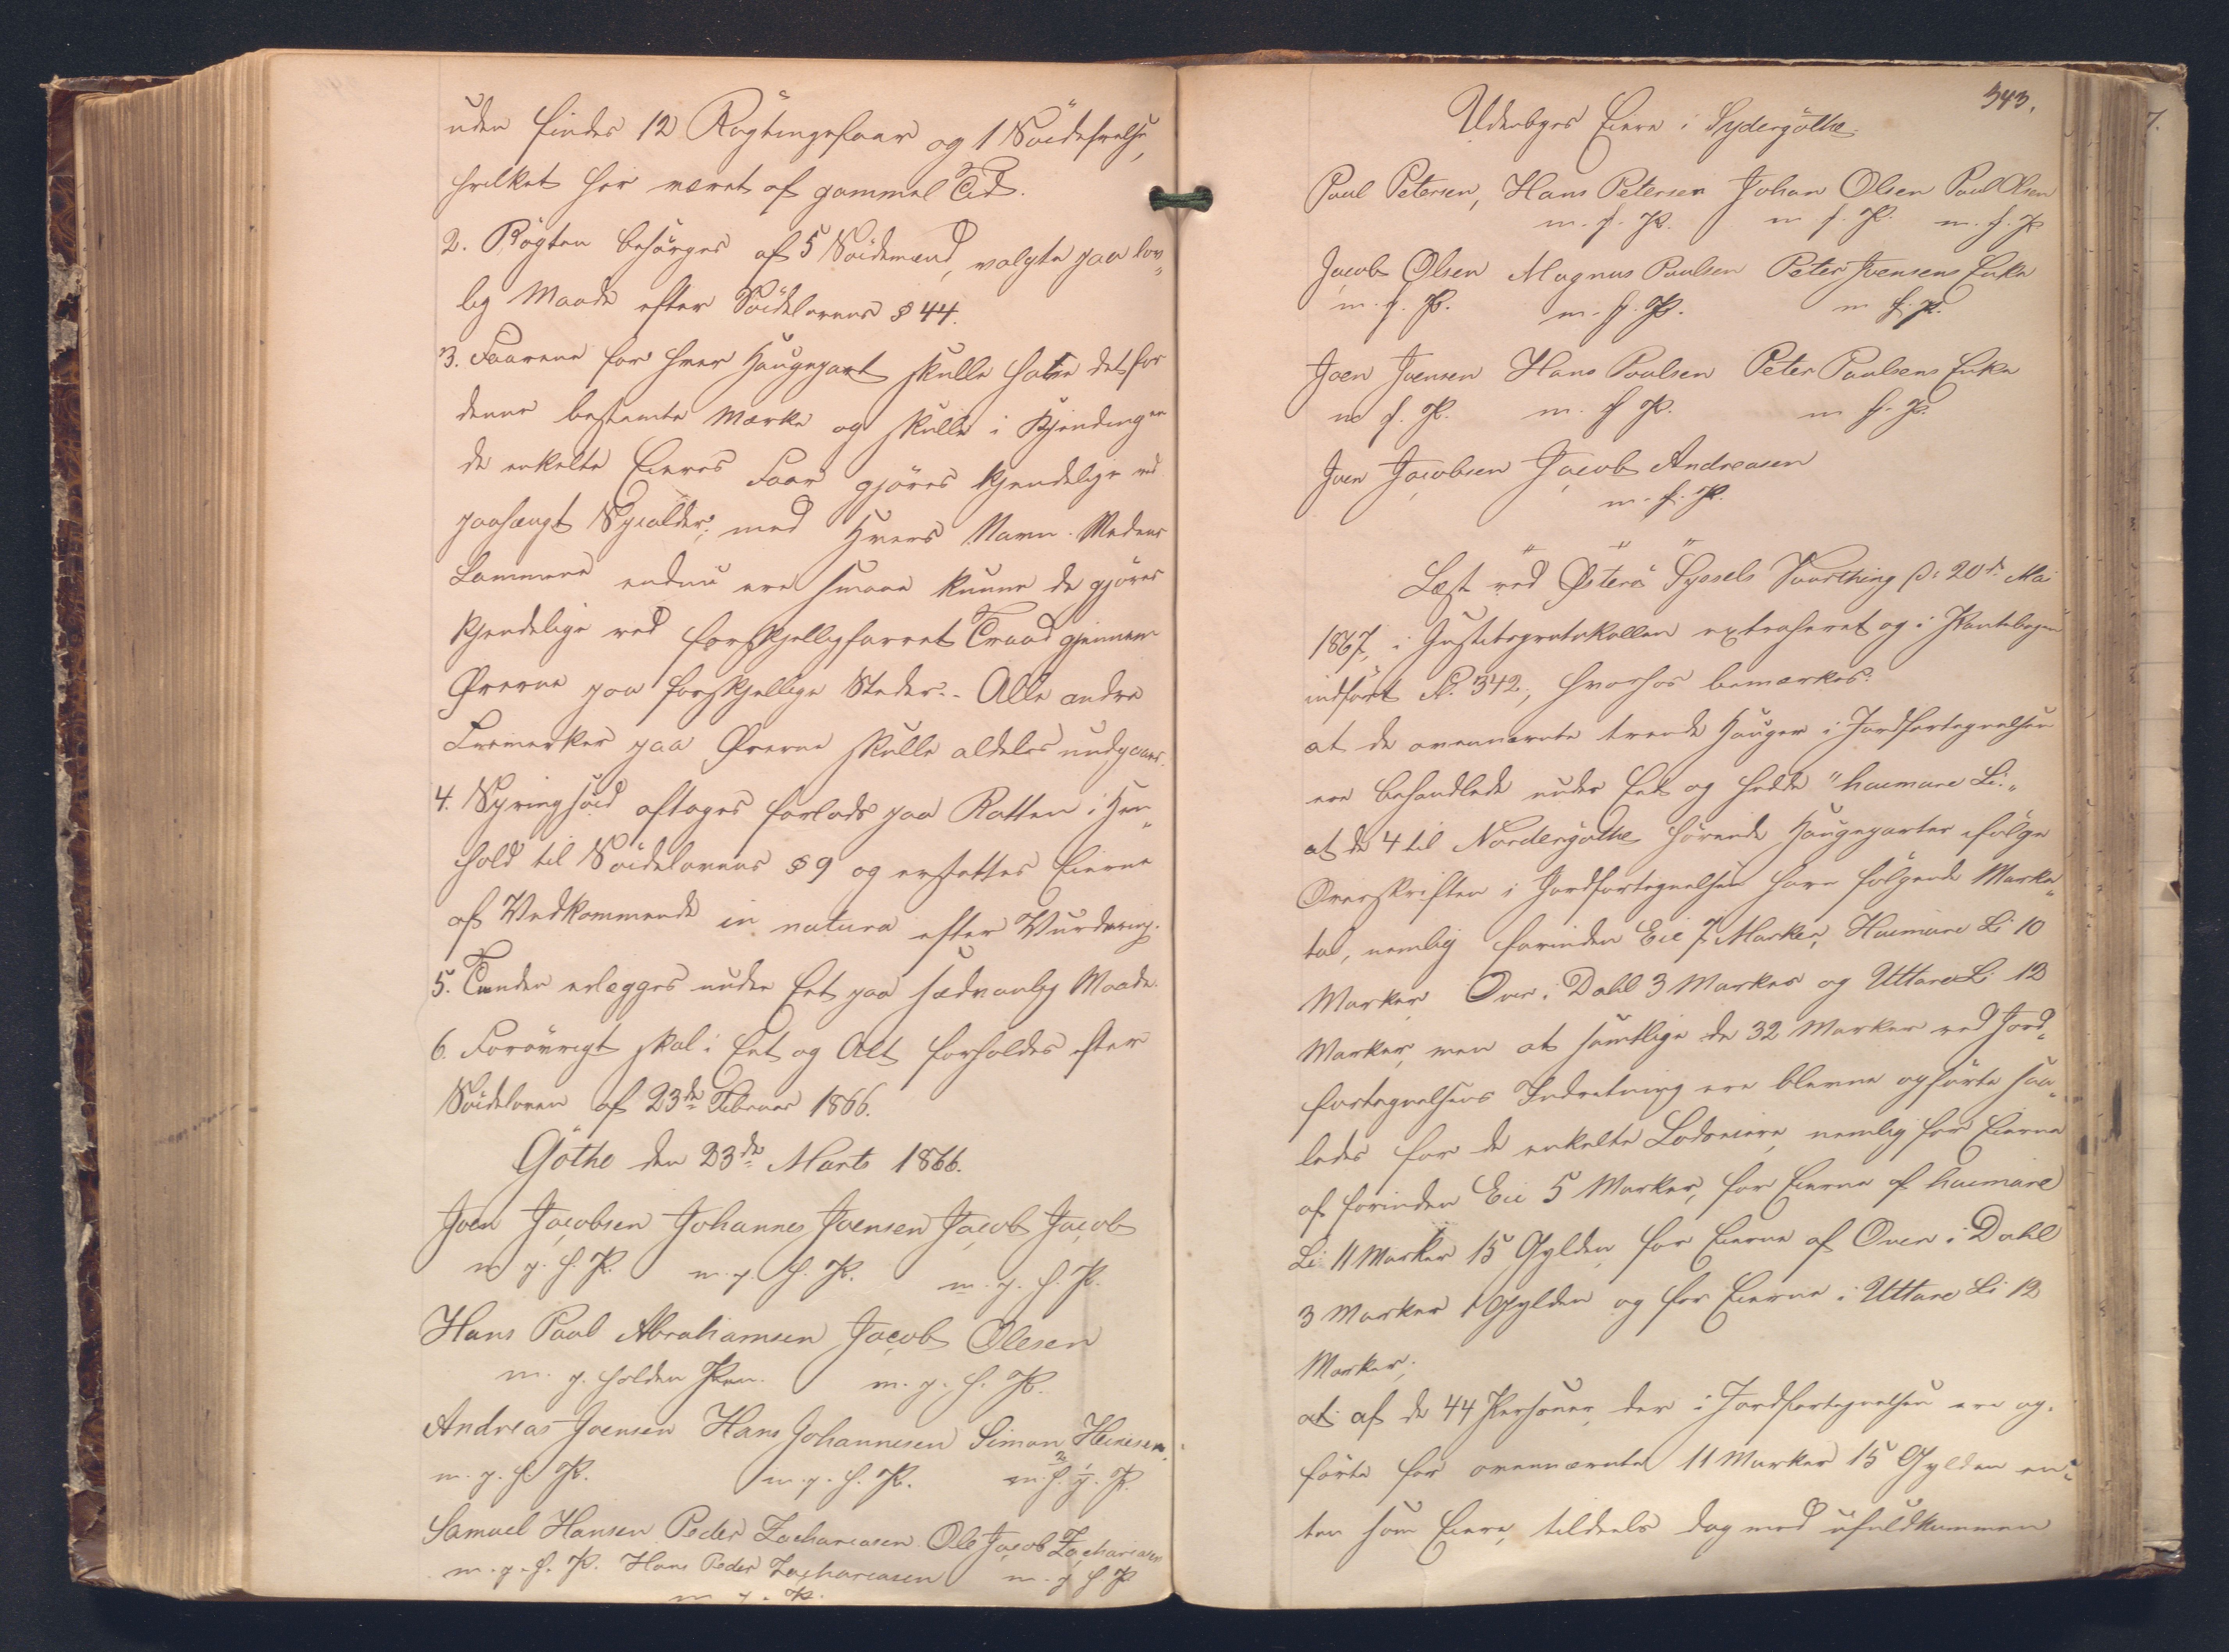 uden findes 12 Rögtingsfaar og 1 Söidefrelse,
hvilket har været af gammel Tid.
2. Rögten besörges af 5 Söidemænd, valgte paa lov„
lig Maade efter Söidelovens § 44.
3. Faarene for hver Haugepart skulle have det for
denne bestemte Mærke og skulle i Kjendingen
de enkelte Eieres Faar gjöres kjendelige ved
paahængt Spialder, med Hvers Navn. Medens
Lammene endnu ere smaae kunne de gjöres
kjendelige ved forskjelligfarvet Traad gjennem
Ørerne paa forskjellige Steder. Alle andre
Særmerker paa Ørerne skulle aldeles undgaaes.
4. Springsöid aftages forlods paa Rætten i Hen„
hold til Söidelovens § 9 og erstattes Eierne
af Vedkommende in natura efter Vurdering.
5. Tienden erlægges under Eet paa sædvanlig Maade.
6. Forövrigt skal i Eet og Alt forholdes efter
Söideloven af 23de Februar 1866.
Göthe den 23de Marts 1866.
Joen Jacobsen Johannes Joensen Jacob Jacob
m. p. f. P. m. p. f. P. m. p. f. P.
Hans Paul Abrahamsen Jacob Olesen
m. p. holden Pen. m. p. f. P.
Andreas Joensen Hans Johannesen Simon Heinesen
m. p. f. P. m. p. f. P. m. f. p. P.
Samuel Hansen Peder Zachariasen Ole Jacob Zachariasen
m. p. f. P. Hans Peder Zachariasen m. p. f. P.
m. p. P.
343.
Udenbyes Eiere i Sydergöthe.
Paul Petersen, Hans Petersen Johan Olsen Paul Olsen
m. f. P. m. f. P. m. f. P.
Jacob Olsen Magnus Paulsen Peter Joensens Enke
m. f. P. m. f. P. m. f. P.
Joen Joensen Hans Poulsen Peter Paulsens Enke
m. f. P. m. f. P. m. f. P.
Joen Jacobsen Jacob Andreasen
m. f. P.
Læst ved Østerö Syssels Vaarthing d. 20de Mai
1867, i Justitsprotokollen extraheret og i Pantebogen
indfört N. 342, hvorhos bemærkes:
at de ovennævnte trende Hauger i Jordfortegnelsen
ere behandlede under Eet og hedde "haimare Li„
at de 4 til Nordergöthe hörende Haugeparter ifölge
Overskriften i Jordfortegnelsen have fölgende Marke„
tal, nemlig forinden Eie 7 Marker, Haimare Li 10
Marker, Over i Dahl 3 Marker og Uttare Li 12
Marker, men at samtlige de 32 Marker ved Jord„
fortegnelsens Indretning ere blevne opförte saa„
ledes for de enkelte Lodseiere, nemlig for Eierne
af forinden Eie 5 Marker, for Eierne af haimare
Li 11 Marker 15 Gylden, for Eierne af Over i Dahl
3 Marker 1 Gylden og for Eierne i Uttare Li 12
Marker;
at af de 44 Personer, der i Jordfortegnelsen ere op„
förte for ovennævnte 11 Marker 15 Gylden en„
ten som Eiere, tildeels dog med ufuldkommen